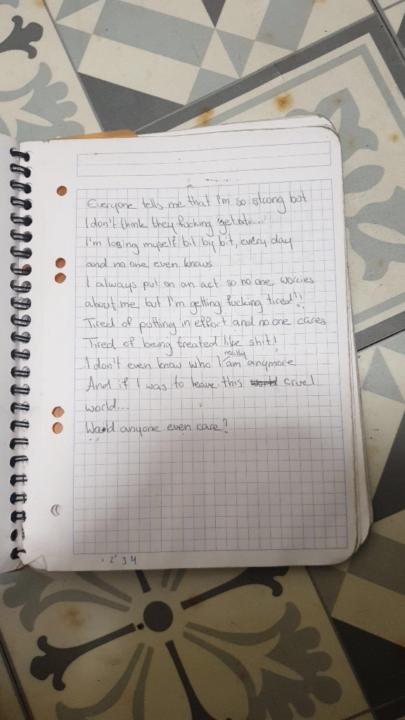 Everyone tells me that I'm so strong but
I don't think they fucking get it....
I'm losing myself bit by bit, every day
and no one even knows
I always put on an act so no one worries
about me but I'm getting fucking tired!!
Tired of putting in effort and no one cares
Tired of being treated like shit!
I don't even know who I really am anymore
And if I was to leave this world cruel
world...
Would anyone even care?
2 3 4